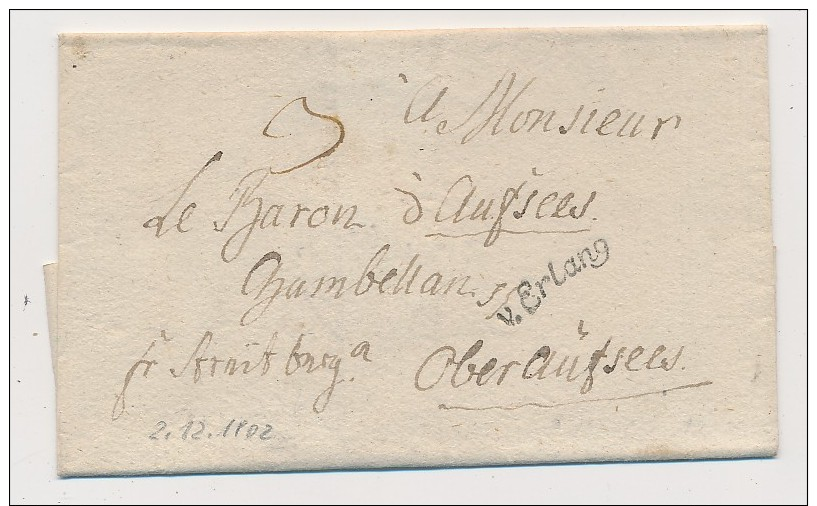 à Monsieur
3
Le Baron d'Aufsees.
Chambellan
v. Erlang
fr Streitburg à Oberaufsees.
2.12.1802